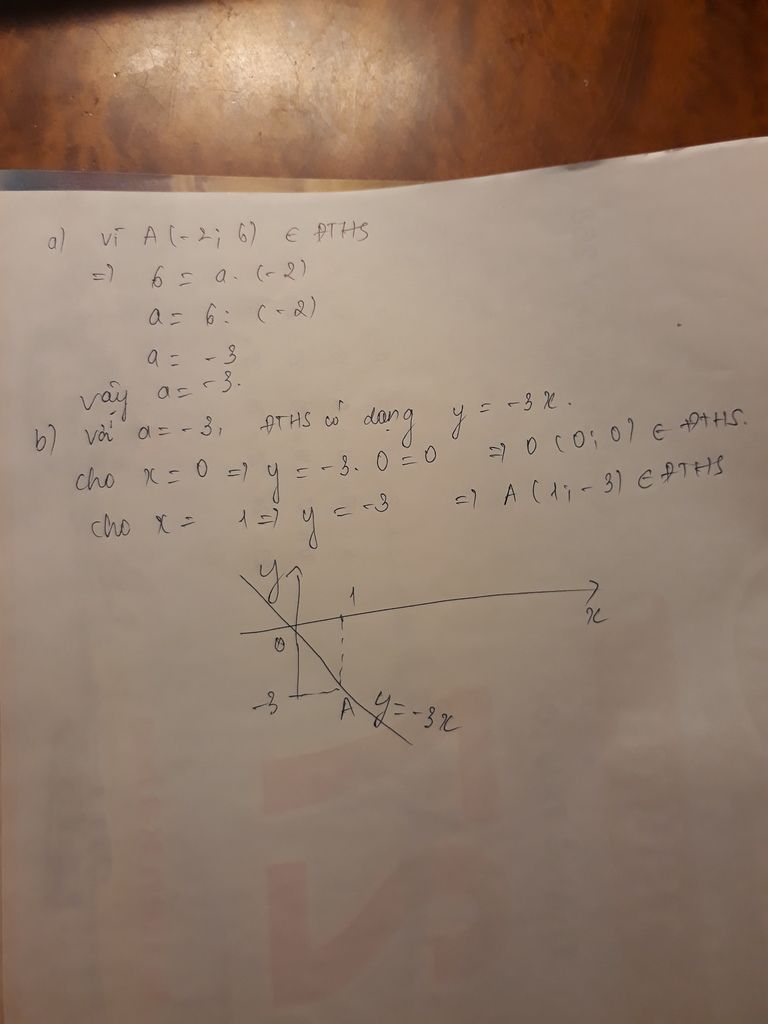 a) vì A (-2; 6) ∈ ĐTHS
=) 6 = a. (-2)
a = 6: (-2)
a = -3
vậy a = -3.
b) với a = -3, ĐTHS có dạng y = -3x.
cho x = 0 =) y = -3. 0 = 0 =) O (0; 0) ∈ ĐTHS.
cho x = 1 =) y = -3 =) A (1; -3) ∈ ĐTHS
y
1
x
O
-3
A y = -3x